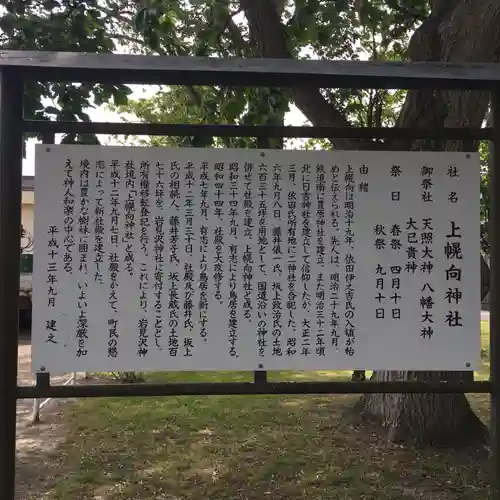 社名 上幌向神社
御祭社 天照大神 八幡大神
大己貴神
祭日 春祭 四月十日
秋祭 九月十日
由緒
上幌向は明治十九年、依田伊之吉氏の入植が始
めと伝えられる。先人は、明治二十九年九月
鉄道南に豊原神社を建立、また明治三十二年頃
北に日吉神社を建立して信仰したが、大正二年
三月、依田氏所有地に二神社を合祀した。昭和
六年九月八日、藤井儀一氏、坂上致治氏の土地
六百三十五坪を用地として、国道沿いの神社を
併せて社殿を建立、上幌向神社と成る。
昭和三十四年九月、有志により鳥居を建立する。
昭和四十四年、社殿を大改修する。
平成七年九月、有志により鳥居を新にする。
平成十二年三月三十日、社殿及び藤井氏、坂上
氏の相続人、藤井芳子氏、坂上長威氏の土地百
七十六坪を、岩見沢神社に寄付することとし、
所有権移転登記を行う。これにより、岩見沢神
社境内「上幌向神社」と成る。
平成十二年九月七日、社殿をかえて、町民の懇
志によって新社殿を建立した。
境内は豊かな樹林に囲まれ、いよいよ深厳を加
えて神人和楽の中心である。
平成十三年九月 建之